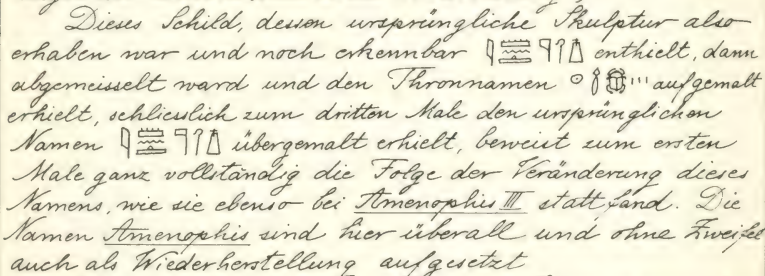 Dieses Schild, dessen ursprüngliche Skulptur also
erhaben war und noch erkennbar 𓇋𓏠𓈖𓊹𓋾𓉺 enthielt, dann
abgemeisselt ward und den Thronnamen 𓇳𓐍𓆣𓏥 aufgemalt
erhielt, schliesslich zum dritten Male den ursprünglichen
Namen 𓇋𓏠𓈖𓊹𓋾 übergemalt erhielt, beweist zum ersten
Male ganz vollständig die Folge der Veränderung dieses
Namens, wie sie ebenso bei Amenophis III statt fand. Die
Namen Amenophis sind hier überall und ohne Zweifel
auch als Wiederherstellung aufgesetzt